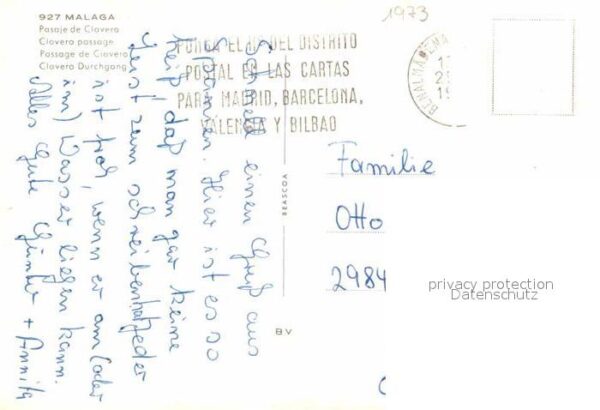 927 MALAGA
Pasaje de Clavero
Clavero passage
Passage de Clavero
Clavero Durchgang
1973
PONGA EL Nº DEL DISTRITO
POSTAL EN LAS CARTAS
PARA MADRID, BARCELONA,
VALENCIA Y BILBAO
BENALMADENA
einen Gruß aus
Spanien. Hier ist es so
heiß, daß man gar keine
Lust zum schreiben hat. Jeder
ist froh, wenn er am (oder
im) Wasser liegen kann.
Alles Gute Günter + Annita
BEASCOA
BV
Familie
Otto
2984
privacy protection
Datenschutz